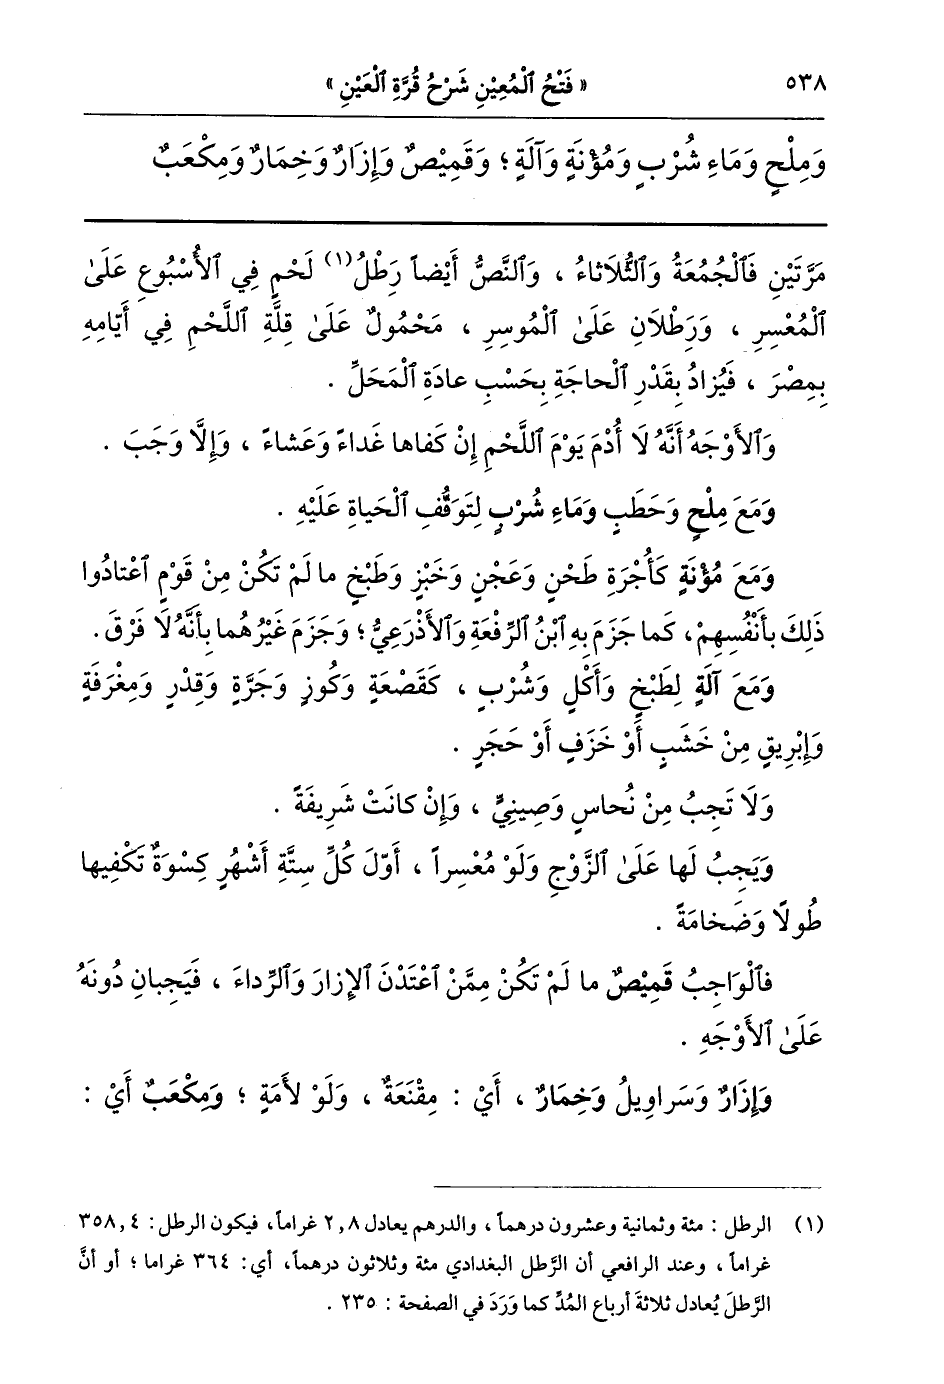 ٥٣٨ « فَتْحُ ٱلْمُعِيْنِ شَرْحُ قُرَّةِ ٱلْعَيْنِ »
وَمِلْحٍ وَمَاءِ شُرْبٍ وَمُؤْنَةٍ وَآلَةٍ ؛ وَقَمِيْصٌ وَإِزَارٌ وَخِمَارٌ وَمِكْعَبٌ
مَرَّتَيْنِ فَٱلْجُمُعَةُ وَٱلثُّلَاثاءُ ، وَٱلنَّصُّ أَيْضاً رَطْلُ(١) لَحْمٍ فِي ٱلأُسْبُوعِ عَلَىٰ
ٱلْمُعْسِرِ ، وَرَطْلَانِ عَلَىٰ ٱلْمُوسِرِ ، مَحْمُولٌ عَلَىٰ قِلَّةِ ٱللَّحْمِ فِي أَيّامِهِ
بِمِصْرَ ، فَيُزادُ بِقَدْرِ ٱلْحاجَةِ بِحَسْبِ عادَةِ ٱلْمَحَلِّ .
وَٱلأَوْجَهُ أَنَّهُ لَا أُدْمَ يَوْمَ ٱللَّحْمِ إِنْ كَفاها غَداءً وَعَشاءً ، وَإِلَّا وَجَبَ .
وَمَعَ مِلْحٍ وَحَطَبٍ وَمَاءِ شُرْبٍ لِتَوَقُّفِ ٱلْحَياةِ عَلَيْهِ .
وَمَعَ مُؤْنَةٍ كَأُجْرَةِ طَحْنٍ وَعَجْنٍ وَخَبْزٍ وَطَبْخٍ ما لَمْ تَكُنْ مِنْ قَوْمٍ ٱعْتادُوا
ذَلِكَ بِأَنْفُسِهِمْ، كَما جَزَمَ بِهِ ٱبْنُ ٱلرِّفْعَةِ وَٱلأَذْرَعِيُّ؛ وَجَزَمَ غَيْرُهُما بِأَنَّهُ لَا فَرْقَ.
وَمَعَ آلَةٍ لِطَبْخٍ وَأَكْلٍ وَشُرْبٍ ، كَقَصْعَةٍ وَكُوزٍ وَجَرَّةٍ وَقِدْرٍ وَمِغْرَفَةٍ
وَإِبْرِيقٍ مِنْ خَشَبٍ أَوْ خَزَفٍ أَوْ حَجَرٍ .
وَلَا تَجِبُ مِنْ نُحاسٍ وَصِينِيٍّ ، وَإِنْ كانَتْ شَرِيفَةً .
وَيَجِبُ لَها عَلَىٰ ٱلزَّوْجِ وَلَوْ مُعْسِراً ، أَوّلَ كُلِّ سِتَّةِ أَشْهُرٍ كِسْوَةٌ تَكْفِيها
طُولًا وَضَخامَةً .
فٱلْوَاجِبُ قَمِيْصٌ ما لَمْ تَكُنْ مِمَّنْ ٱعْتَدْنَ ٱلإِزارَ وَٱلرِّداءَ ، فَيَجِبانِ دُونَهُ
عَلَىٰ ٱلأَوْجَهِ .
وَإِزَارٌ وَسَراوِيلُ وَخِمَارٌ ، أَيْ : مِقْنَعَةٌ ، وَلَوْ لأَمَةٍ ؛ وَمِكْعَبٌ أَيْ :
(١) الرطل : مئة وثمانية وعشرون درهماً ، والدرهم يعادل ٢,٨ غراماً، فيكون الرطل: ٣٥٨,٤
غراماً ، وعند الرافعي أن الرَّطل البغدادي مئة وثلاثون درهماً، أي: ٣٦٤ غراما ؛ أو أنَّ
الرَّطلَ يُعادل ثلاثةَ أرباع المُدِّ كما وَرَدَ في الصفحة : ٢٣٥ .